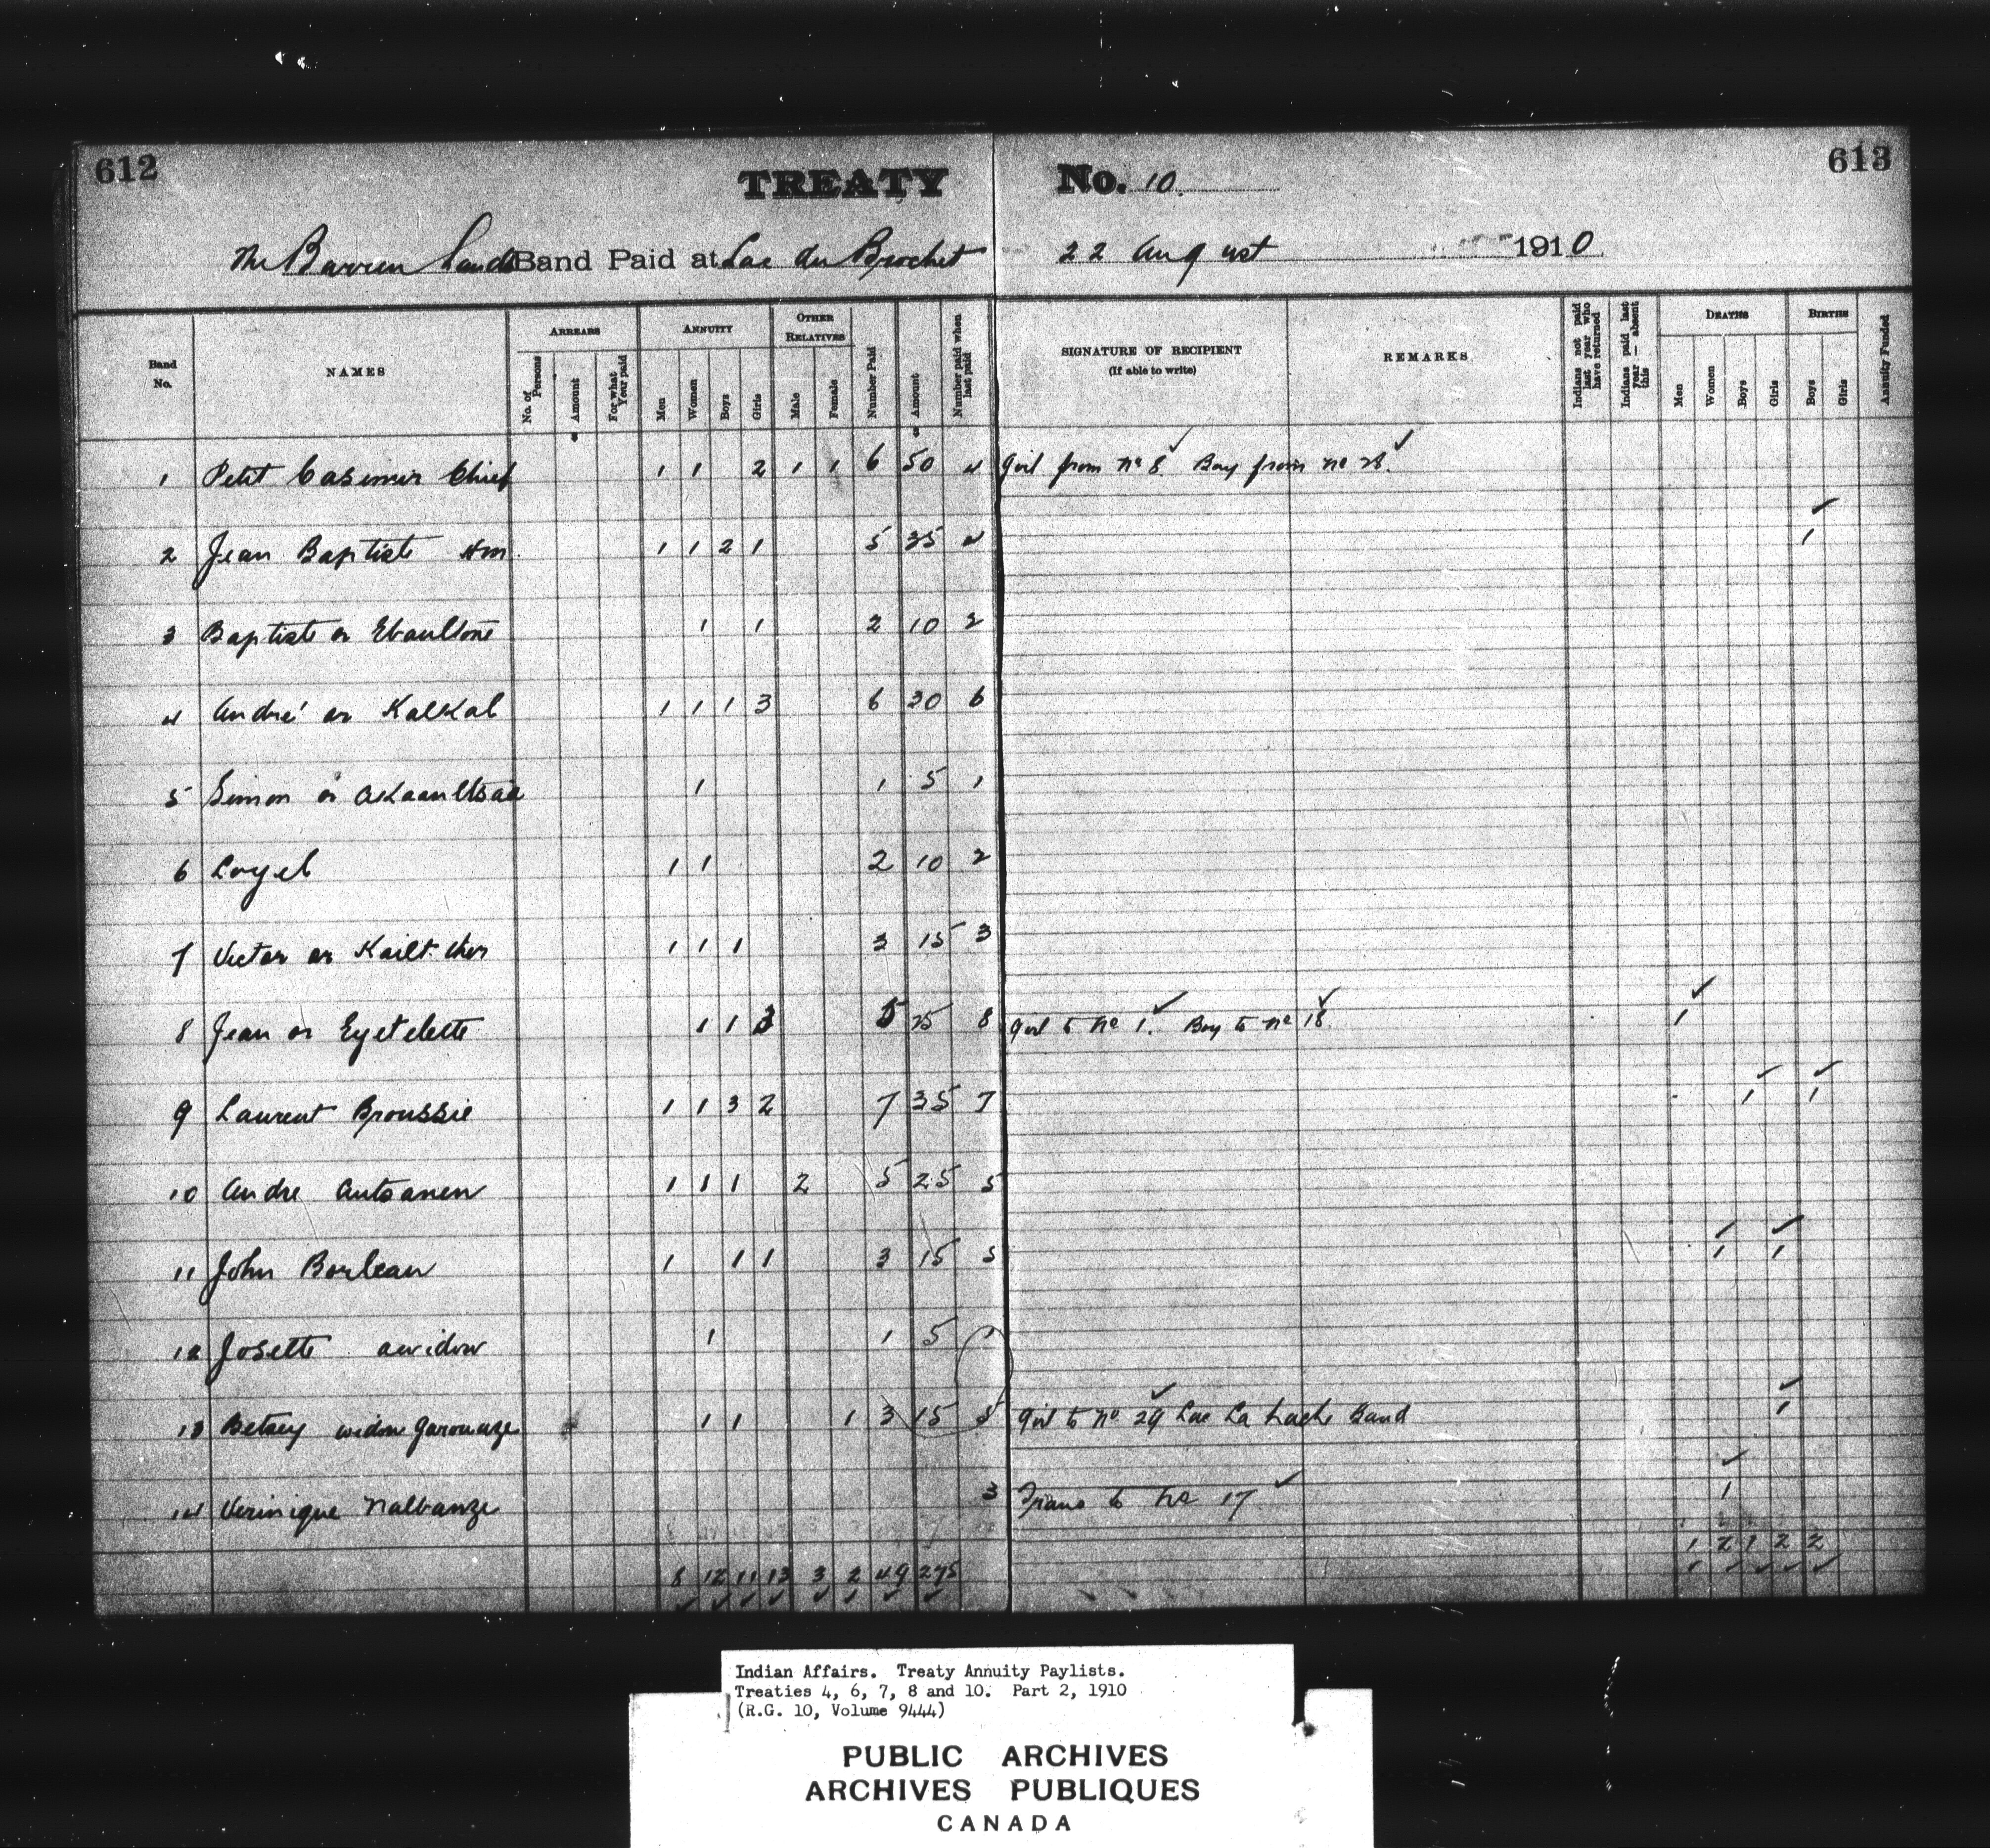 612
613
TREATY No. 10.
The Barren Lands Band Paid at Lac du Brochet 22 August 1910
Band No.
NAMES
ARREARS
No. of Persons
Amount
For what Year paid
ANNUITY
Men
Women
Boys
Girls
OTHER RELATIVES
Male
Female
Number Paid
Amount
Number paid when last paid
SIGNATURE OF RECIPIENT
(If able to write)
REMARKS
Indians not paid last year who have returned
Indians paid last year — absent this
DEATHS
Men
Women
Boys
Girls
BIRTHS
Boys
Girls
Annuity Funded
1 Petit Casimir Chief 1 1 2 1 1 6 50 4 Girl from No 8 ✓ Boy from No 28. ✓
2 Jean Baptiste Hm 1 1 2 1 5 35 4 1 ✓
3 Baptiste or 1 1 2 10 2
4 André or Kalkal 1 1 1 3 6 30 6
5 Simon or 1 1 5 1
6 Loyel 1 1 2 10 2
7 Victor or 1 1 1 3 15 3
8 Jean or Eyetelette 1 1 3 5 25 8 Girl to No 1. ✓ Boy to No 18 ✓ 1 ✓
9 Laurent Broussie 1 1 3 2 7 35 7 1 ✓ 1 ✓
10 Andre Autsanen 1 1 1 2 5 25 5
11 John Borleau 1 1 1 3 15 5 1 ✓ 1 ✓
12 Josette a widow 1 1 5 1
13 Betsey widow Garouaze 1 1 1 3 15 5 Girl to No. 29 ✓ Lac La hache Band 1 ✓
14 Verinique Nalbanze 3 Trans to No 17 ✓ 1 ✓
8 12 11 13 3 2 49 275 1 2 1 2 2
Indian Affairs. Treaty Annuity Paylists.
Treaties 4, 6, 7, 8 and 10. Part 2, 1910
(R.G. 10, Volume 9444)
PUBLIC ARCHIVES
ARCHIVES PUBLIQUES
CANADA